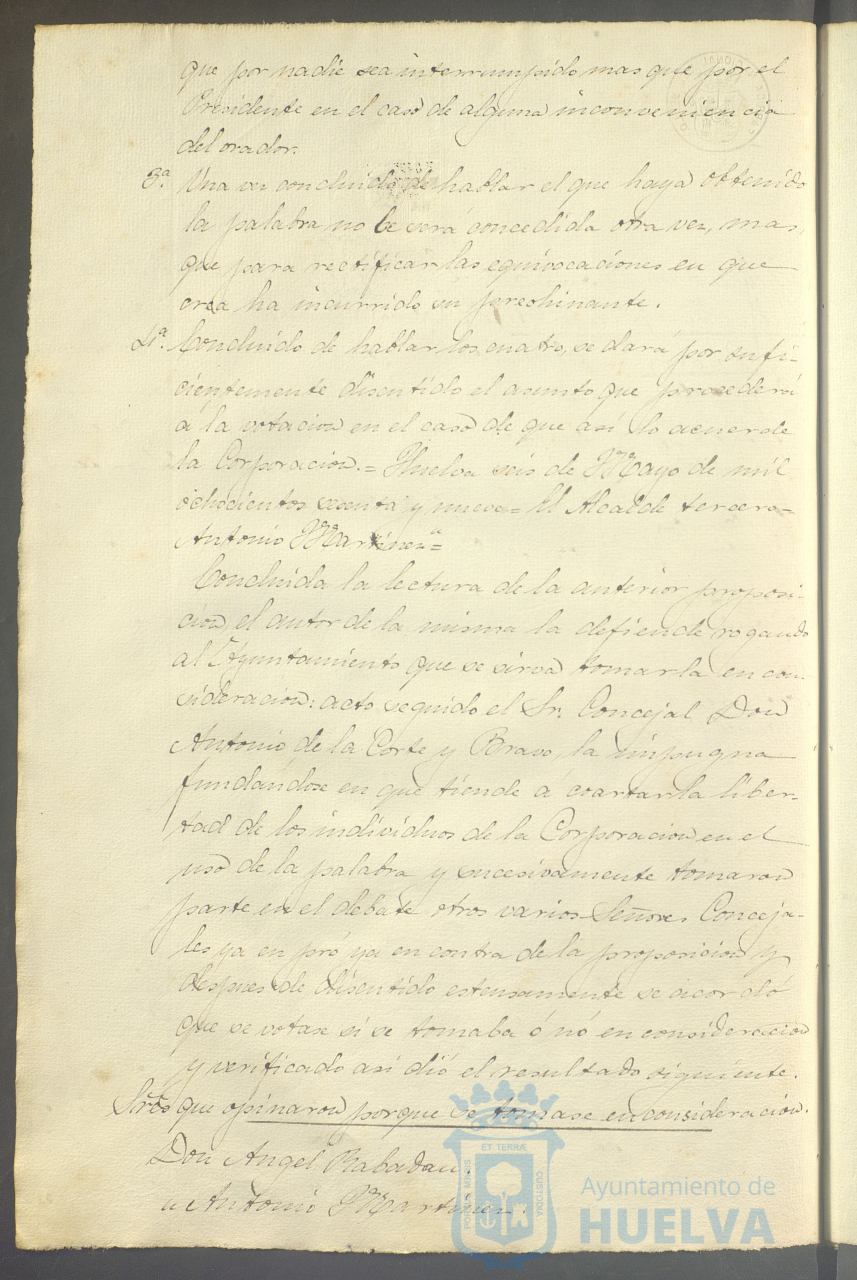 que por nadie sea interrumpido mas que por el
Presidente en el caso de alguna inconveniencia
del orador.
3ª. Una vez concluido de hablar el que haya obtenido
la palabra no le será concedida otra vez, mas,
que para rectificar las equivocaciones en que
crea ha incurrido su preohinante.
4ª. Concluido de hablar los cuatro, se dará por sufi-
cientemente discutido el asunto que procederá
á la votacion en el caso de que así lo acuerde
la Corporacion.= Huelva seis de Mayo de mil
ochocientos sesenta y nueve= El Alcalde tercero=
Antonio Martinez"=
Concluida la lectura de la anterior proposi-
cion, el autor de la misma la defiende rogando
al Ayuntamiento que se sirva tomarla en con-
sideracion: acto seguido el Sr. Concejal Don
Antonio de la Corte y Bravo, la impugna
fundándose en que tiende á coartar la liber-
tad de los individuos de la Corporacion en el
uso de la palabra y sucesivamente tomaron
parte en el debate otros varios Señores Conceja-
les ya en pró ya en contra de la proposicion y
despues de discutido estensamente se acordó
que se votase si se tomaba ó nó en consideracion
y verificado así dió el resultado siguiente.
Sres que opinaron porque se tomase en consideracion.
Don Angel Rabadan.
" Antonio Martinez.
PORTUS MARIS ET TERRÆ CUSTODIA
Ayuntamiento de
HUELVA